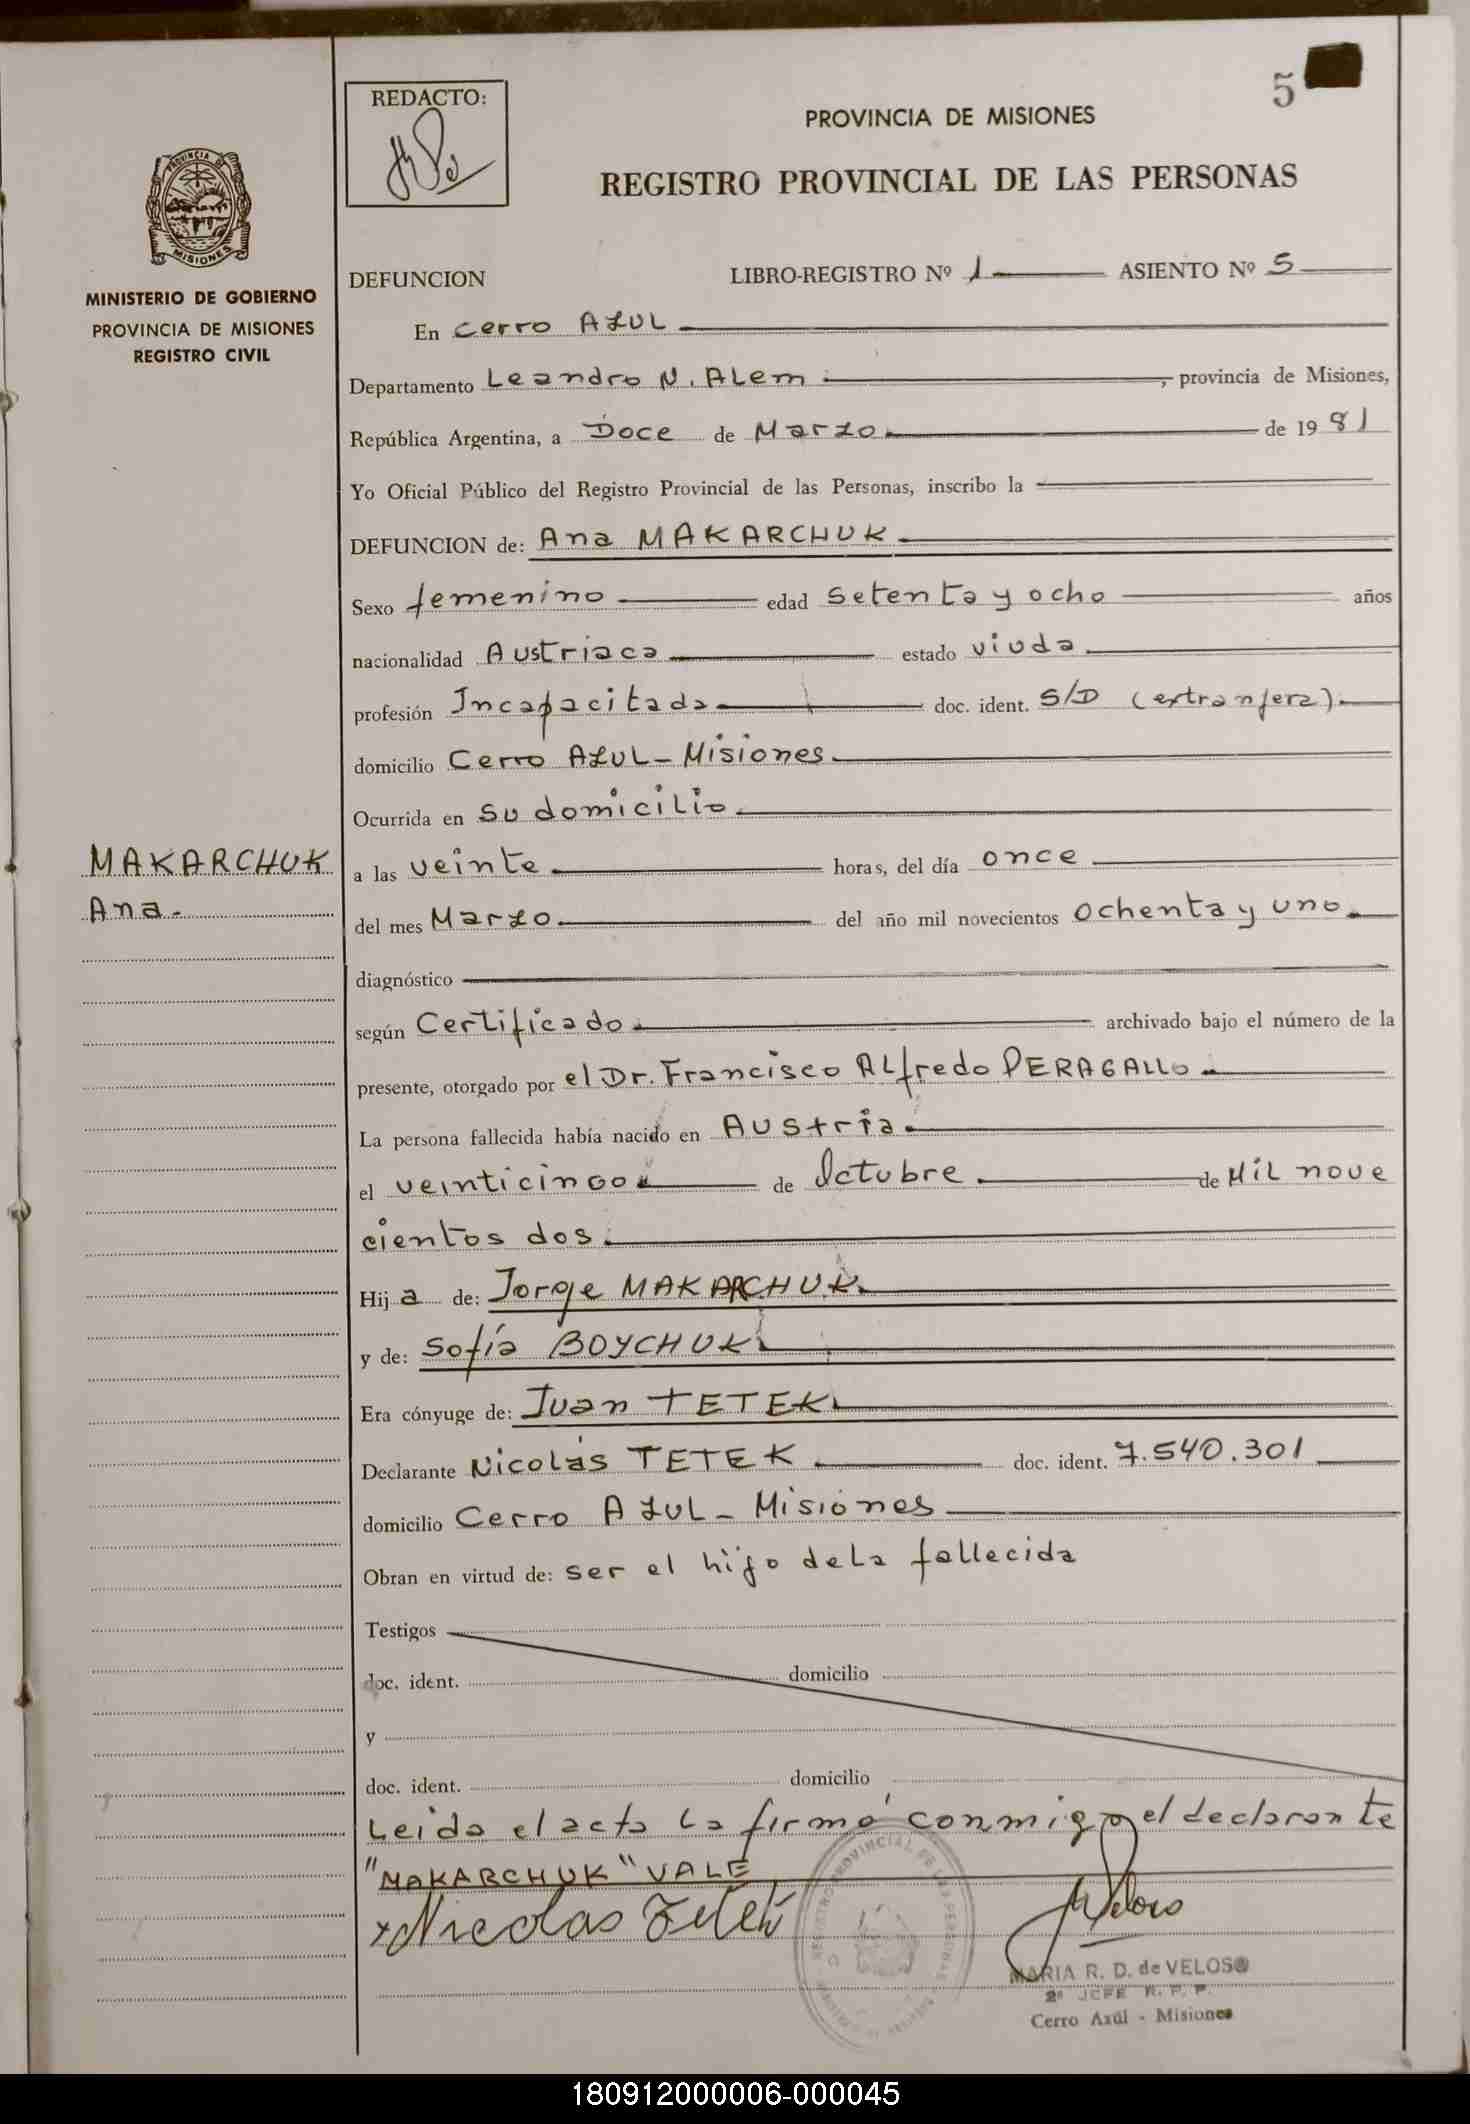 5
REDACTO:
PROVINCIA DE MISIONES
REGISTRO PROVINCIAL DE LAS PERSONAS
PROVINCIA DE
MISIONES
MINISTERIO DE GOBIERNO
PROVINCIA DE MISIONES
REGISTRO CIVIL
DEFUNCION LIBRO-REGISTRO Nº 1 ASIENTO Nº 5
En Cerro Azul
Departamento Leandro N. Alem, provincia de Misiones,
República Argentina, a Doce de Marzo de 1981
Yo Oficial Público del Registro Provincial de las Personas, inscribo la
DEFUNCION de: Ana MAKARCHUK
Sexo femenino edad setenta y ocho años
nacionalidad Austriaca estado viuda
profesión Incapacitada doc. ident. S/D (extranjera).
domicilio Cerro Azul - Misiones
Ocurrida en su domicilio
MAKARCHUK
Ana.
a las veinte horas, del día once
del mes Marzo del año mil novecientos ochenta y uno
diagnóstico
según Certificado archivado bajo el número de la
presente, otorgado por el Dr. Francisco Alfredo PERAGALLO
La persona fallecida había nacido en Austria
el veinticinco de Octubre de Mil nove
cientos dos.
Hij a de: Jorge MAKARCHUK
y de: Sofía BOYCHUK
Era cónyuge de: Juan TETEK
Declarante Nicolás TETEK doc. ident. 7.540.301
domicilio Cerro Azul - Misiones
Obran en virtud de: ser el hijo dela fallecida
Testigos
doc. ident. domicilio
y
doc. ident. domicilio
Leida el acta la firmó conmigo el declarante
"MAKARCHUK" VALE
x Nicolas Tetek
MARIA R. D. de VELOSO
2º JEFE R. P. P.
Cerro Azúl - Misiones
180912000006-000045